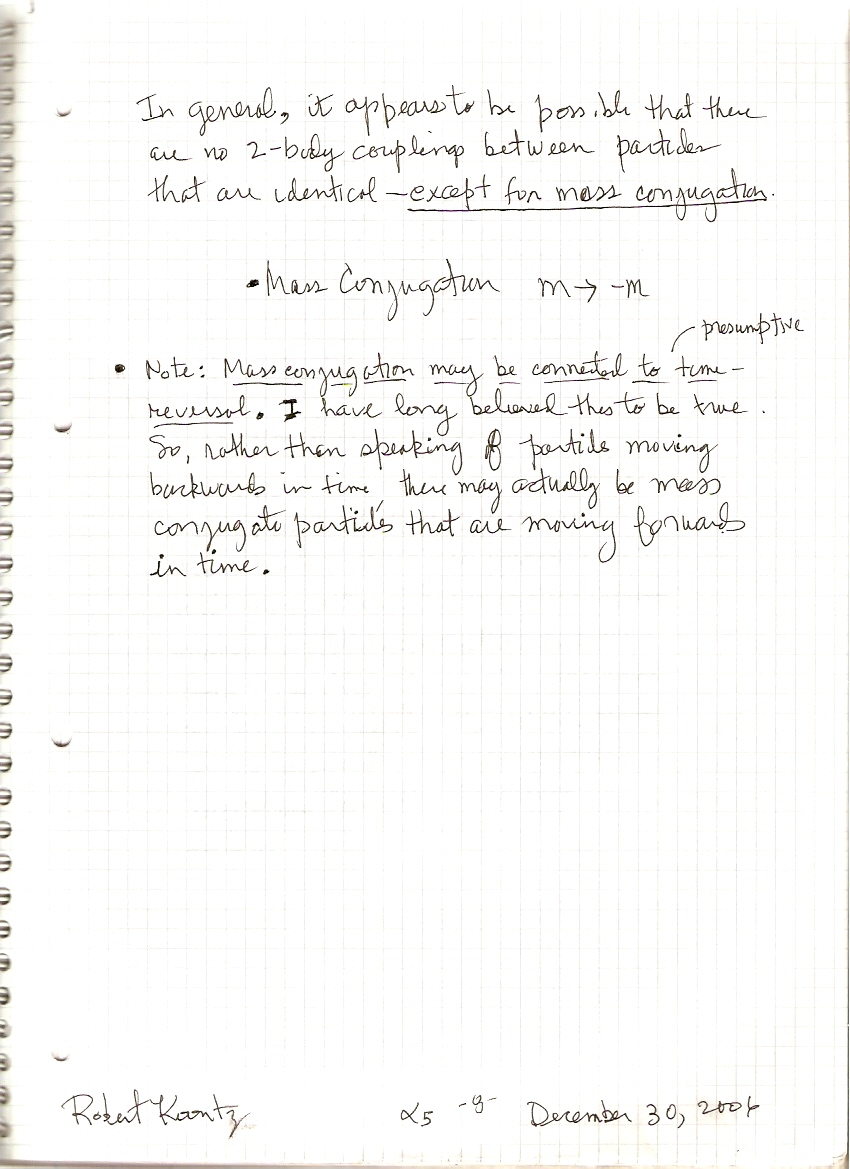 In general, it appears to be possible that there
are no 2-body couplings between particles
that are identical - except for mass conjugation.
• Mass Conjugation m → -m
presumptive
• Note: Mass conjugation may be connected to time-
reversal. I have long believed this to be true.
So, rather than speaking of particles moving
backwards in time, there may actually be mass
conjugate particles that are moving forwards
in time.
Robert Koontz α5 -8- December 30, 2006